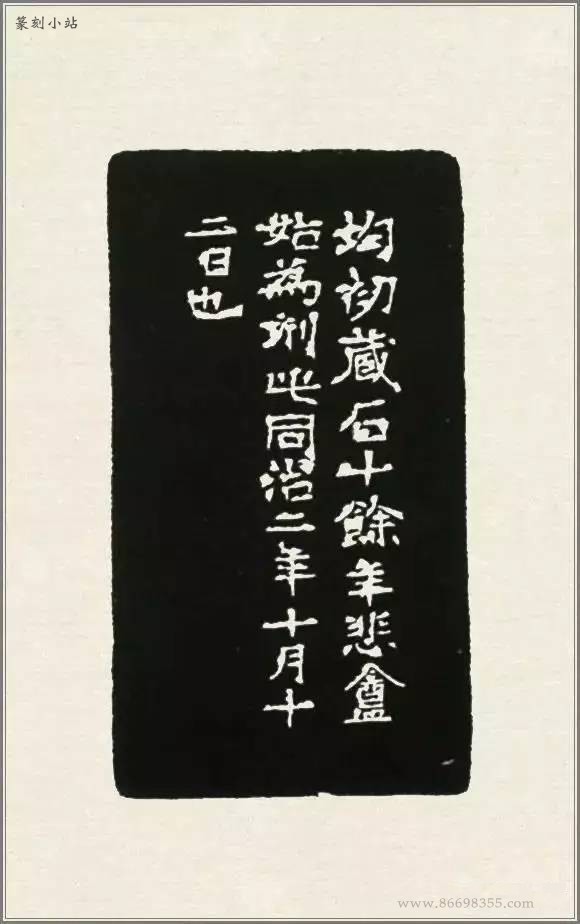 篆刻小站
均初藏石十餘年悲盦
始為刑此同治二年十月十
二日也
www.86698355.com